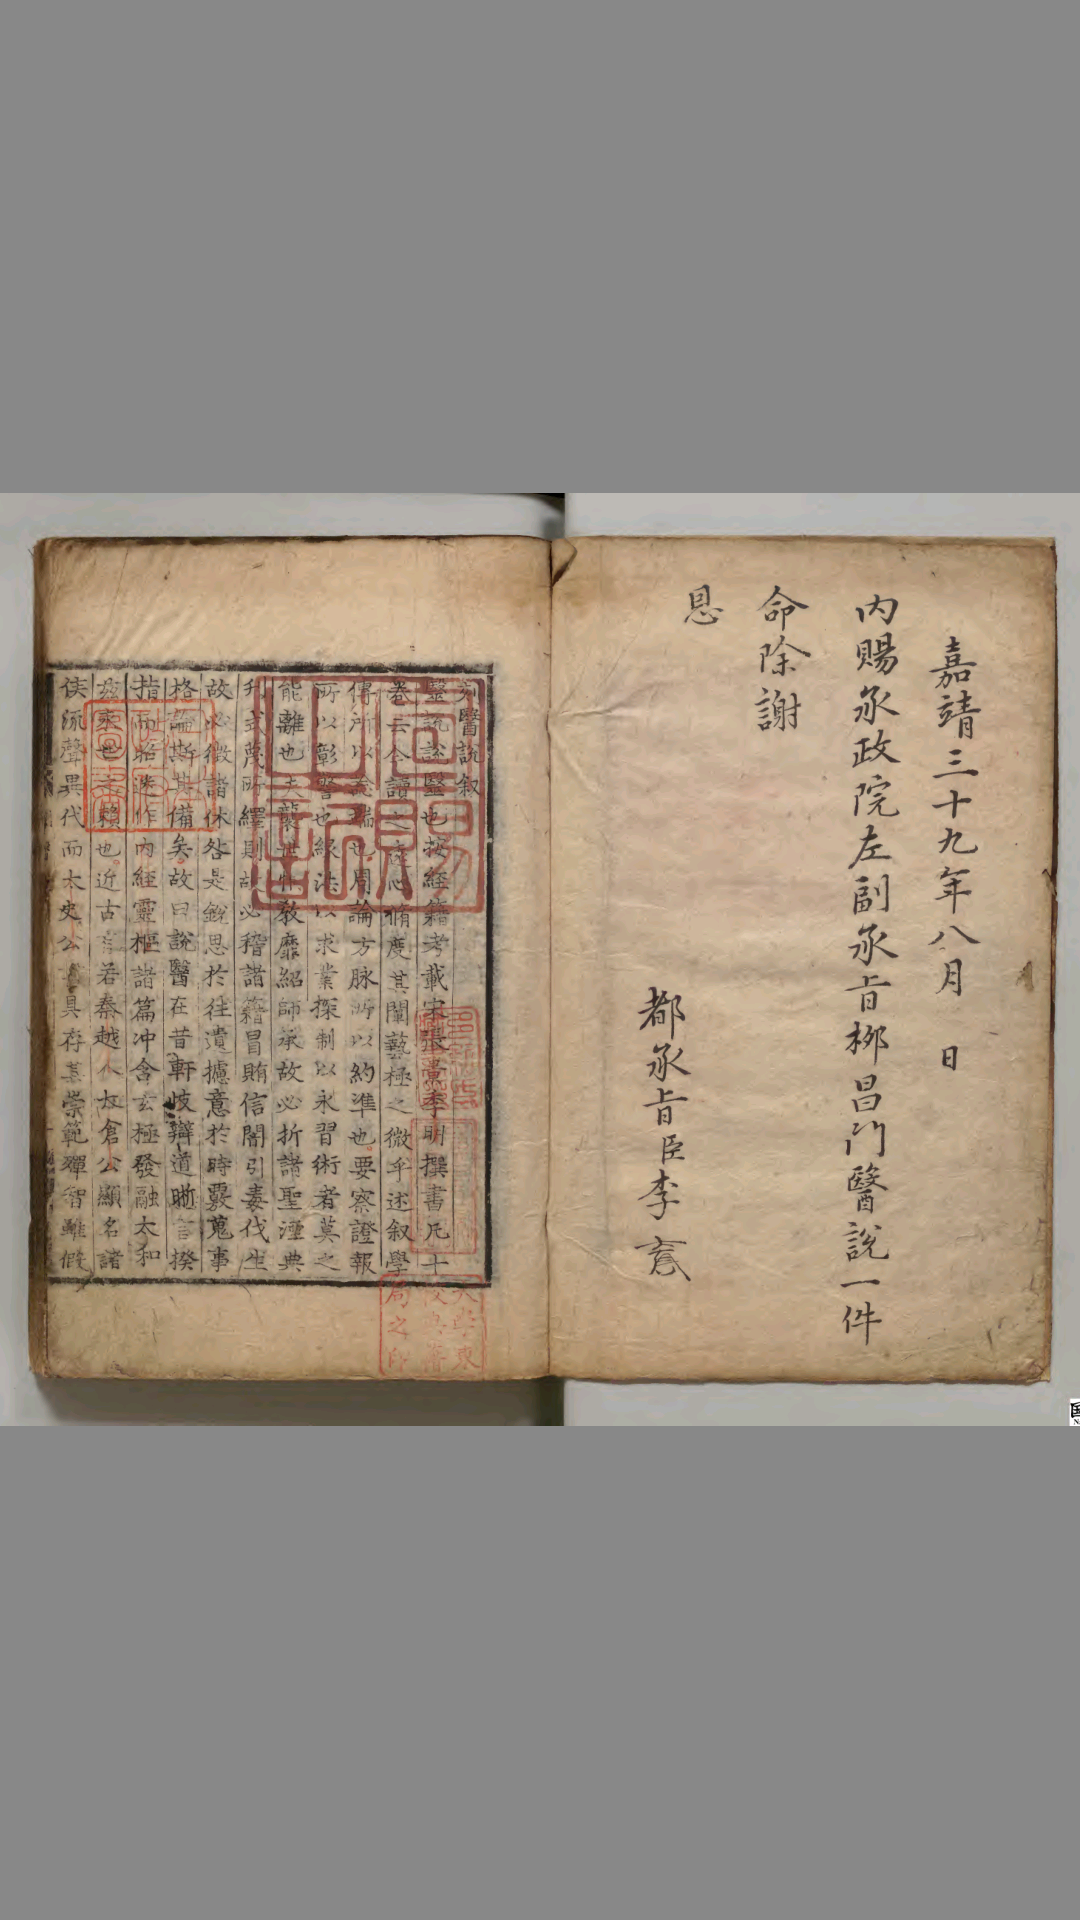 嘉靖三十九年八月 日
内賜承政院左副承旨柳昌門醫說一件
命除謝
恩
都承旨臣李
刻醫說叙
醫說說醫也按經籍考載宋張杲季明撰書凡十
卷云今讀之迹心脩度其闡藝極之微乎述叙學
傳所以說瑞也周論方脉所以約準也要察證報
所以彰警也緣法以求業探制以永習術者莫之
能離也夫襲世惟教靡紹師承故必折諸聖湮典
刋式蔑所繹則故必稽諸籍冒賄信闇引毒伐生
故必徵諸休咎是銳思於往遺攄意於時覈蒐事
格論斯其備矣故曰說醫在昔軒岐辯道晣言揆
指而昭迷作内經靈樞諸篇冲含玄極發融太和
玆來世之賴也近古言若秦越人太倉公顯名諸
侯流聲異代而太史公書具存薹崇範殫智雖假
大學東
校典籍
局之印